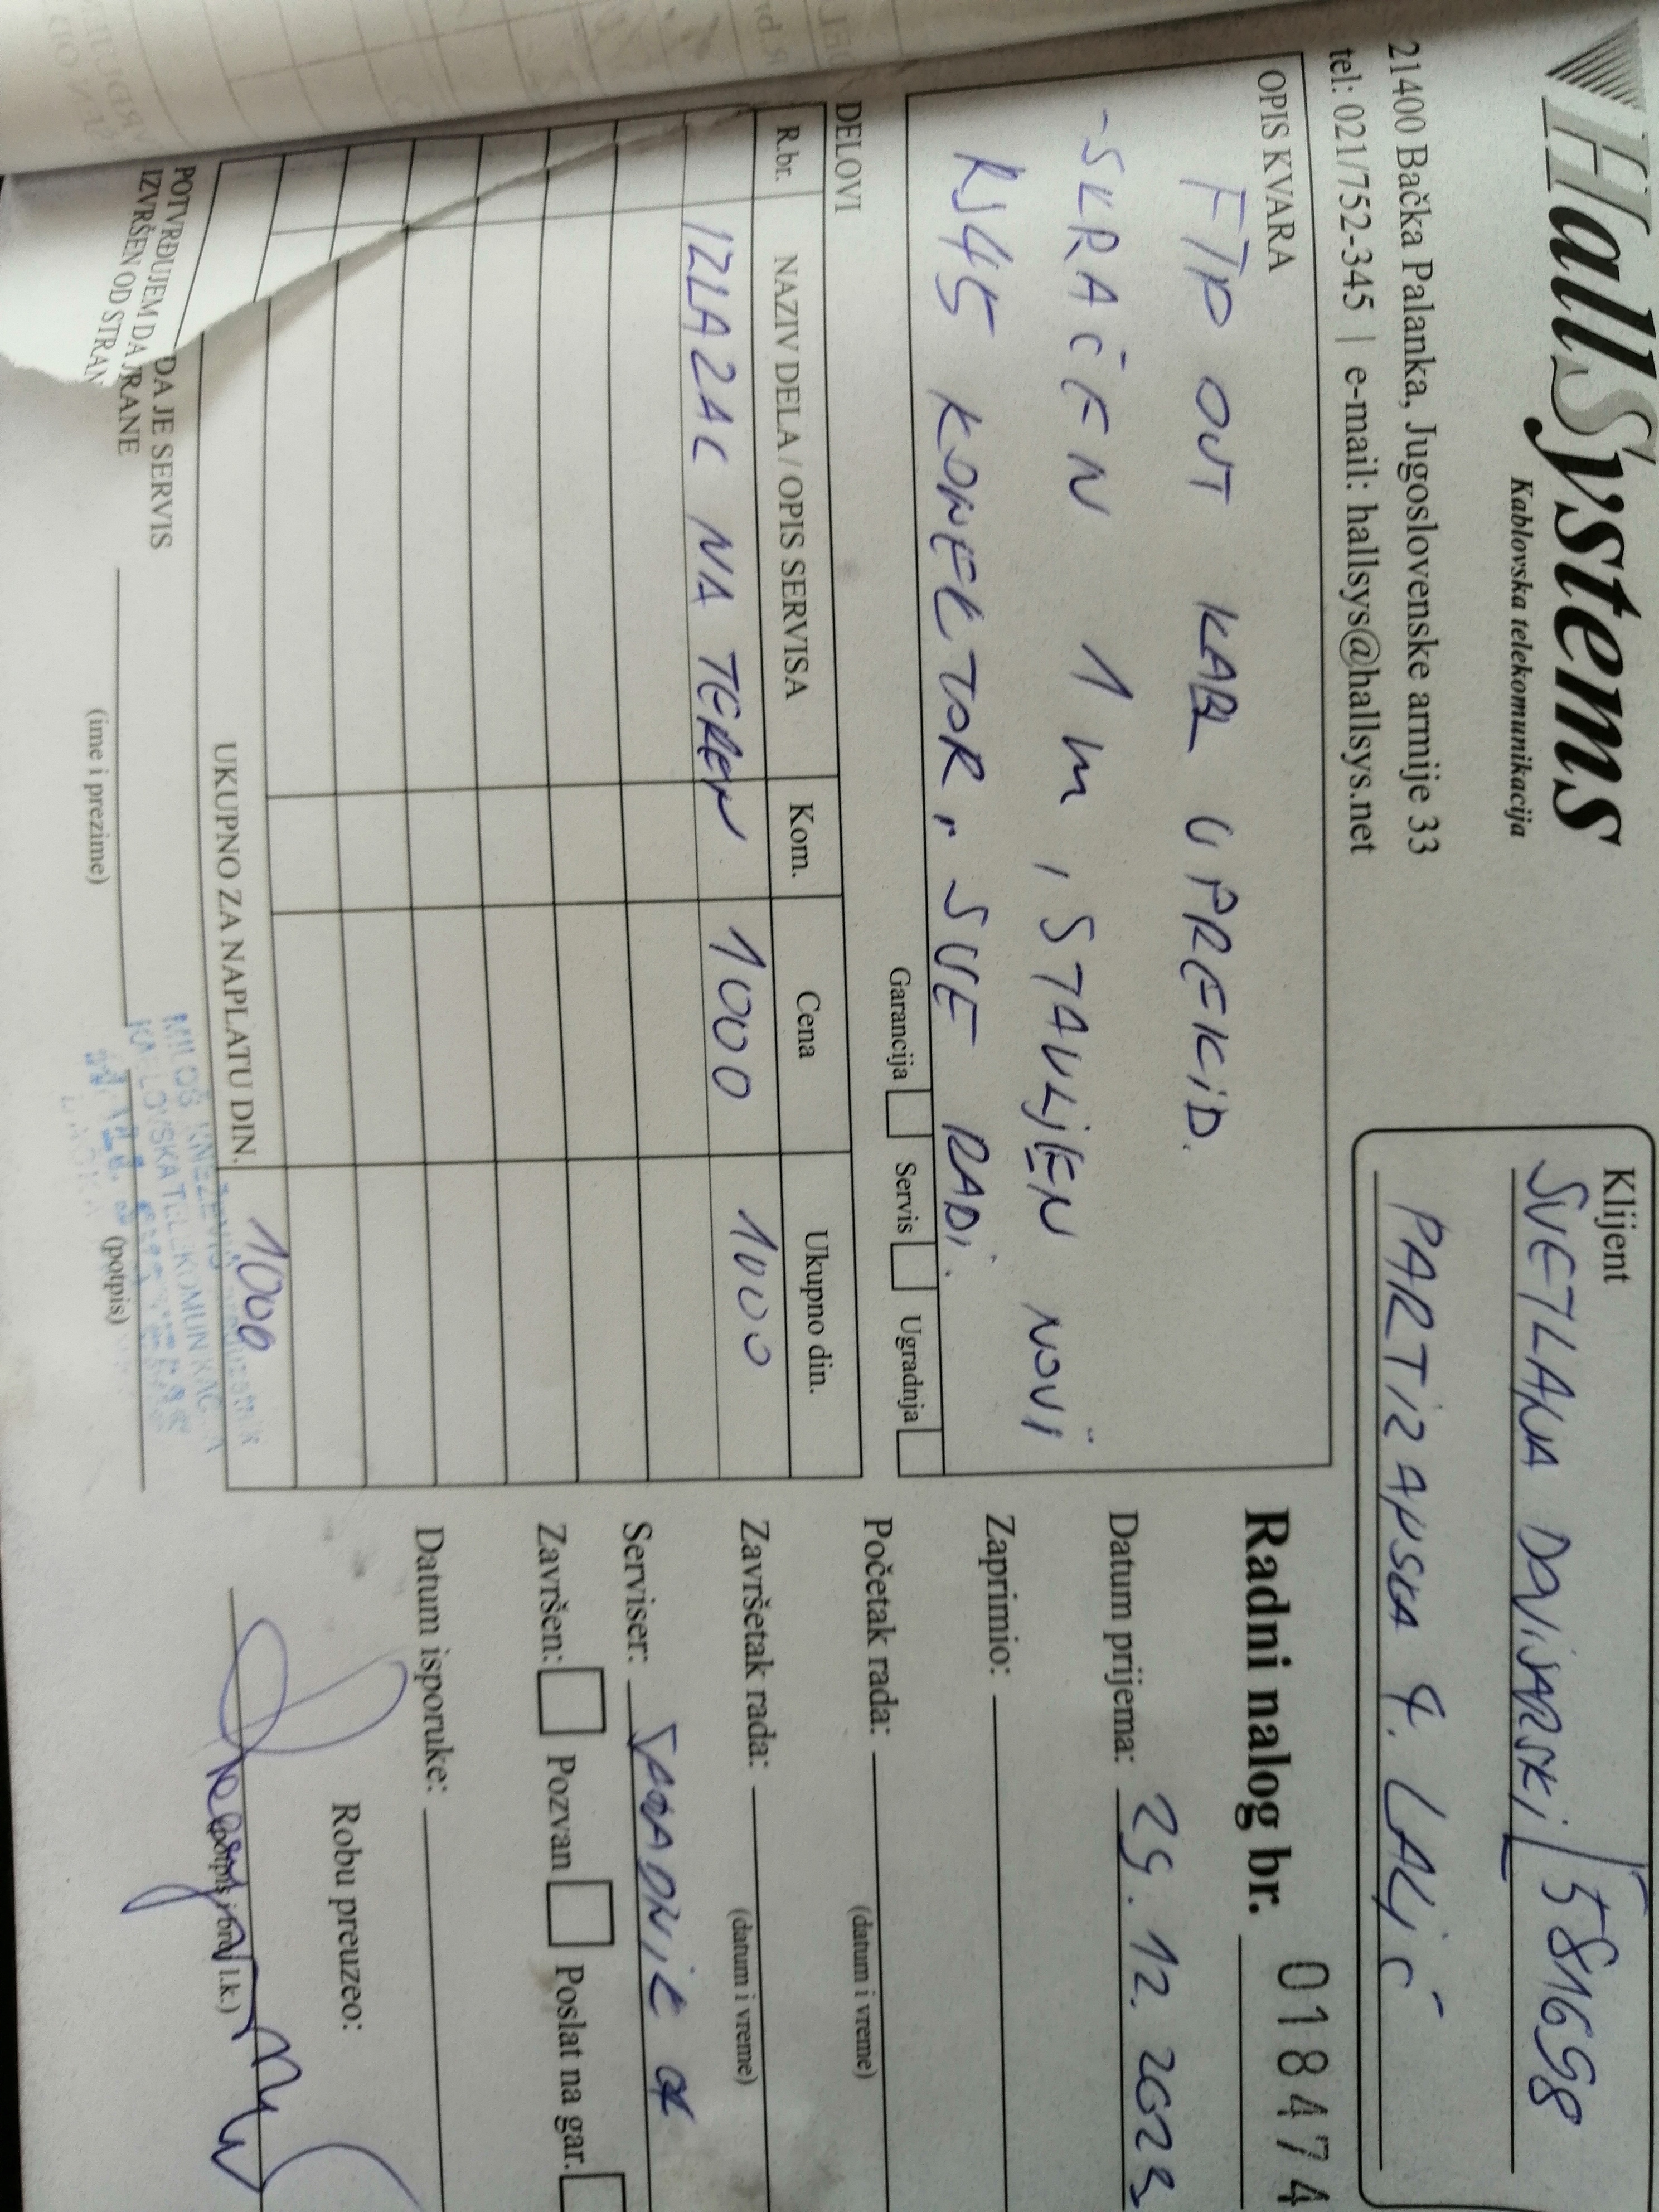 HallSystems
Kablovska telekomunikacija
21400 Bačka Palanka, Jugoslovenske armije 33
tel: 021/752-345 | e-mail: hallsys@hallsys.net
Klijent
SVETLANA DOVIJARSKI 5816698
PARTIZANSKA 9. LALIĆ
OPIS KVARA
FTP OUT KABL U PREKID.
-SKRAĆEN 1 m, STAVLJEN NOVI
RJ45 KONEKTOR, SVE RADI.
Garancija Servis Ugradnja
DELOVI
R.br. NAZIV DELA / OPIS SERVISA Kom. Cena Ukupno din.
IZLAZAK NA TEREN 1000 1000
UKUPNO ZA NAPLATU DIN. 1000
POTVRĐUJEM DA JE SERVIS
IZVRŠEN OD STRANE
(ime i prezime) (potpis)
MILOŠ KNEŽEVIĆ
KABLOVSKA TELEKOMUNIKACIJA
Radni nalog br. 018474
Datum prijema: 29. 12. 2023
Zaprimio:
Početak rada:
(datum i vreme)
Završetak rada:
(datum i vreme)
Serviser:
Završen: Pozvan Poslat na gar.
Datum isporuke:
Robu preuzeo:
(potpis i broj l.k.)